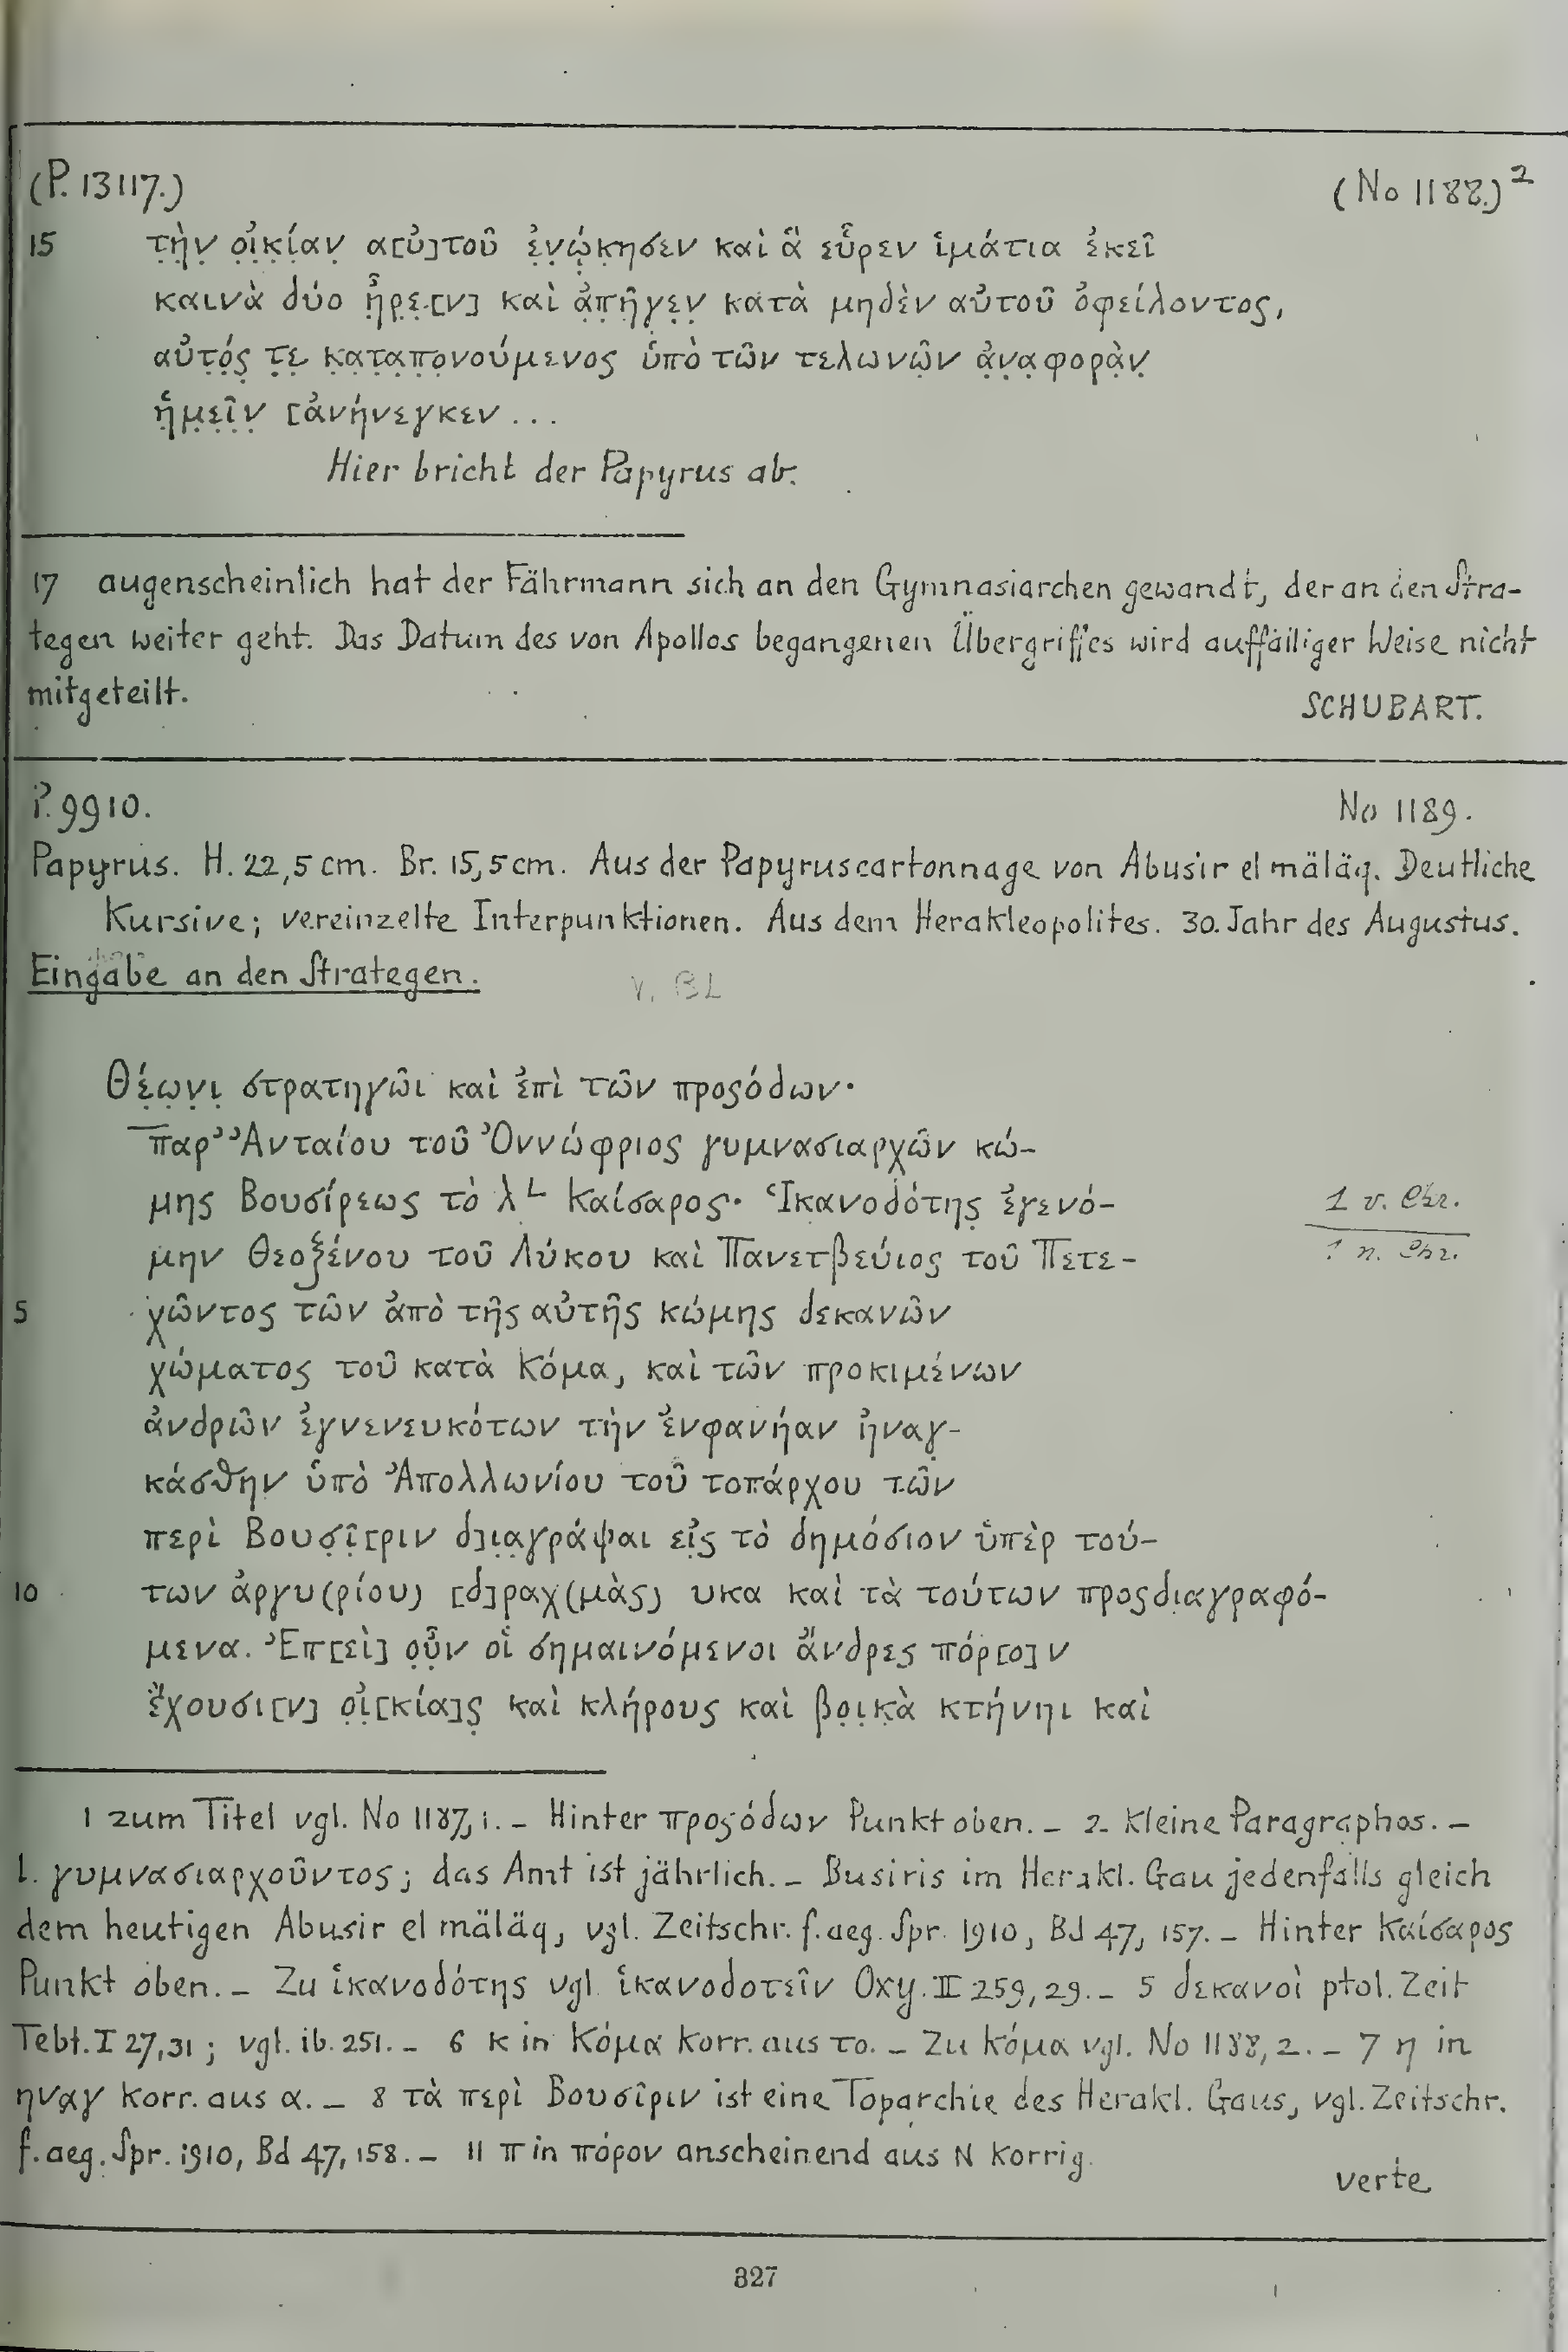 (P. 13117.) (No 1188.)²
15 τ̣ὴ̣ν̣ ο̣ἰ̣κ̣ί̣αν̣ α[ὐ]τοῦ ἐ̣ν̣ῴ̣κ̣ησεν καὶ ἃ̣ εὗρεν ἱμάτια ἐκεῖ
καινὰ δύο ἦ̣ρ̣ε̣.[ν] καὶ ἀ̣π̣ῆ̣γε̣ν̣ κατὰ μηδὲν αὐτοῦ ὀφείλοντος,
αὐτ̣ό̣ς̣ τ̣ε̣ κ̣α̣τ̣α̣π̣ο̣νούμενος ὑπὸ τῶν τελωνῶ̣ν ἀ̣ν̣α̣φορὰ̣ν̣
ἡ̣μ̣ε̣ῖ̣ν̣ [ἀνήνεγκεν ...
Hier bricht der Papyrus ab.
17 augenscheinlich hat der Fährmann sich an den Gymnasiarchen gewandt, der an den Stra-
tegen weiter geht. Das Datum des von Apollos begangenen Übergriffes wird auffälliger Weise nicht
mitgeteilt. SCHUBART.
P. 9910. No 1189.
Papyrus. H. 22,5 cm. Br. 15,5 cm. Aus der Papyruscartonnage von Abusir el mäläq. Deutliche
Kursive; vereinzelte Interpunktionen. Aus dem Herakleopolites. 30. Jahr des Augustus.
Eingabe an den Strategen. V. BL
Θέ̣ω̣ν̣ι̣ στρατηγῶι καὶ ἐπὶ τῶν προςόδων·
παρ' Ἀνταίου τοῦ Ὀννώφριος γυμνασιαρχῶν κώ-
μης Βουσίρεως τὸ λ└ Καίσαρος· Ἱκανοδότης̣ ἐγενό- 1 v. Chr.
μην Θεοξένου τοῦ Λύκου καὶ Πανετβεύιος τοῦ Πετε- 1 n. Chr.
5 χῶντος τῶν ἀπὸ τῆς αὐτῆς κώμης δεκανῶν
χώματος τοῦ κατὰ Κόμα, καὶ τῶν προκιμένων
ἀνδρῶν ἐγνενευκότων τὴν ἐνφανήαν ἠναγ̣-
κάσθην ὑπὸ Ἀπολλωνίου τοῦ τοπάρχου τῶν
περὶ Βουσ̣ῖ̣[ριν δ]ι̣α̣γράψαι εἰ̣ς τὸ δημόσιον ὑπὲρ τού-
10 των ἀργυ(ρίου) [δ]ραχ(μὰς) υκα καὶ τὰ τούτων προςδιαγραφό-
μενα. Ἐπ[εὶ] ο̣ὖ̣ν οἱ σημαινόμενοι ἄνδρες πόρ[ο]ν
ἔχουσι[ν] ο̣ἰ̣[κία]ς̣ καὶ κλήρους καὶ βο̣ι̣κ̣ὰ κτήνηι καὶ
1 zum Titel vgl. No 1187,1. – Hinter προςόδων Punkt oben. – 2 Kleine Paragraphos. –
l. γυμνασιαρχοῦντος; das Amt ist jährlich. – Busiris im Herakl. Gau jedenfalls gleich
dem heutigen Abusir el mäläq, vgl. Zeitschr. f. aeg. Spr. 1910, Bd 47, 157. – Hinter Καίσαρος
Punkt oben. – Zu ἱκανοδότης vgl. ἱκανοδοτεῖν Oxy. II 259,29. – 5 δεκανοὶ ptol. Zeit
Tebt. I 27,31; vgl. ib. 251. – 6 κ in Κόμα korr. aus το. – Zu Κόμα vgl. No 1188,2. – 7 η in
ηναγ korr. aus α. – 8 τὰ περὶ Βουσῖριν ist eine Toparchie des Herakl. Gaus, vgl. Zeitschr.
f. aeg. Spr. 1910, Bd 47, 158. – 11 π in πόρον anscheinend aus N korrig.
verte
327